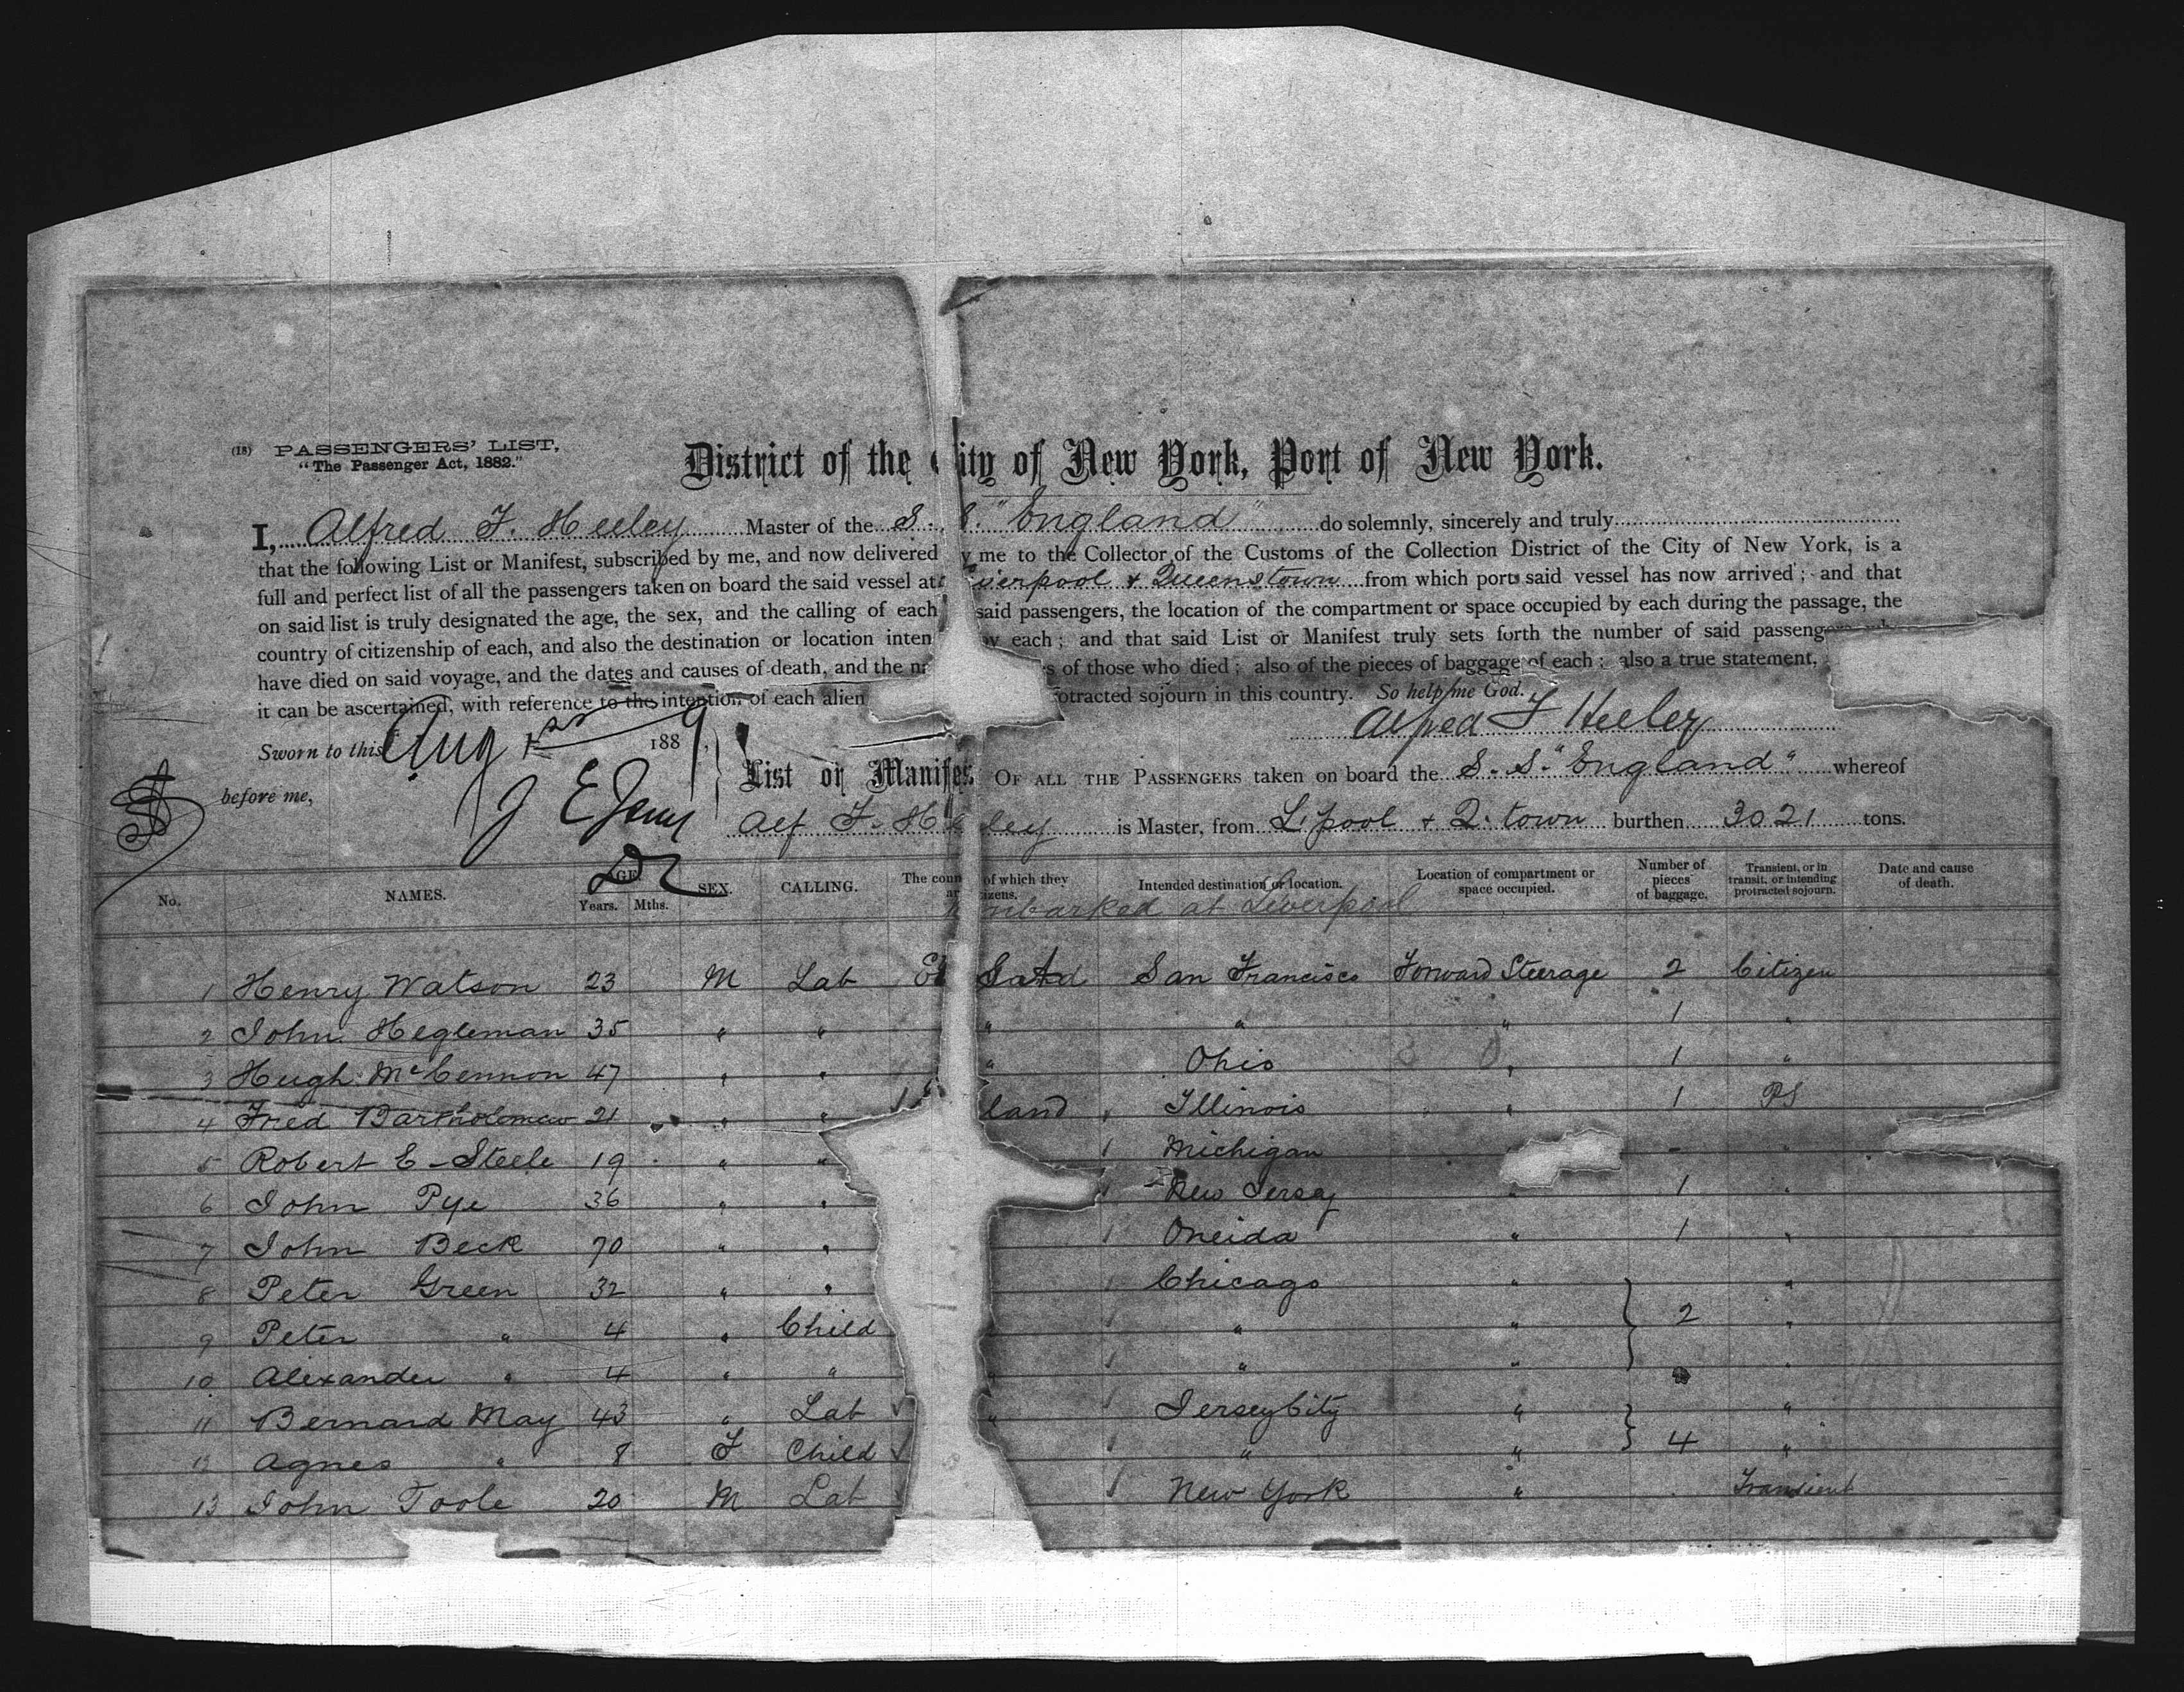 (18) PASSENGERS' LIST,
"The Passenger Act, 1882."
District of the City of New York, Port of New York.
I, Alfred F. Heeley Master of the S. S. "England" do solemnly, sincerely and truly
that the following List or Manifest, subscribed by me, and now delivered y me to the Collector of the Customs of the Collection District of the City of New York, is a
full and perfect list of all the passengers taken on board the said vessel at Liverpool & Queenstown from which ports said vessel has now arrived; and that
on said list is truly designated the age, the sex, and the calling of each said passengers, the location of the compartment or space occupied by each during the passage, the
country of citizenship of each, and also the destination or location inten by each; and that said List or Manifest truly sets forth the number of said passengers
have died on said voyage, and the dates and causes of death, and the na s of those who died; also of the pieces of baggage of each; also a true statement,
it can be ascertained, with reference to the intention of each alien otracted sojourn in this country. So help me God.
Alfred F Heeley
Sworn to this Aug 1st 1889,
before me,
List or Manifes OF ALL THE PASSENGERS taken on board the S. S. "England" whereof
Alf F. Heeley is Master, from L'pool & Q. town burthen 3021 tons.
No. NAMES. AGE. Years. Mths. SEX. CALLING. The coun of which they ar izens. Intended destination or location. Location of compartment or space occupied. Number of pieces of baggage. Transient, or in transit, or intending protracted sojourn. Date and cause of death.
Embarked at Liverpool
1 Henry Watson 23 M Lab San Francisco Forward Steerage 2 Citizen
2 John Hegleman 35 " " " " " 1 "
3 Hugh McCennon 47 " " " Ohio " 1 "
4 Fred Bartholomew 21 " " land Illinois " 1 PS
5 Robert E Steele 19 " " Michigan - "
6 John Pye 36 " " New Jersey " 1 "
7 John Beck 70 " " Oneida " 1 "
8 Peter Green 32 " " Chicago " "
9 Peter " 4 " Child " " 2 "
10 Alexander " 4 " " " " "
11 Bernard May 43 " Lab " Jersey City " "
12 Agnes " 8 F Child " " 4 "
13 John Toole 20 M Lab New York " Transient